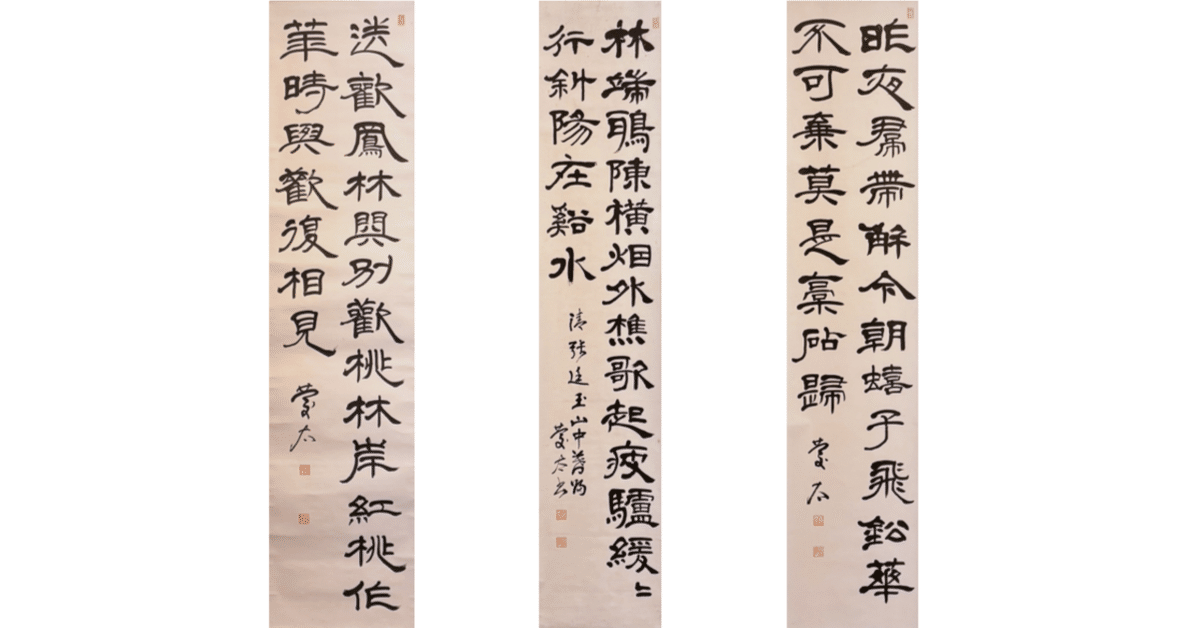 昨夜帬帶解今朝蟢子飛鈆華
不可棄莫是稾砧歸
林端鴉陳橫烟外樵歌起疲驢緩〻
行斜陽在谿水
清張廷玉山中
送歡鳳林與別歡桃林岸紅桃作
華時與歡復相見